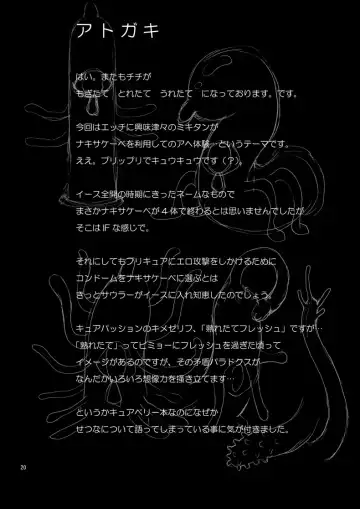 アトガキ
はい。またもチチが
もぎたて　とれたて　うれたて　になっております。です。
今回はエッチに興味津々のミキタンが
ナキサケーベを利用してのアヘ体験…というテーマです。
ええ。プリップリでキュウキュウです（？）。
イース全開の時期にきったネームなもので
まさかナキサケーベが４体で終わるとは思いませんでしたが
そこはIFな感じで。
それにしてもプリキュアにエロ攻撃をしかけるために
コンドームをナキサケーベに選ぶとは
きっとサウラーがイースに入れ知恵したのでしょう。
キュアパッションのキメゼリフ、「熟れたてフレッシュ」ですが…
「熟れたて」ってビミョーにフレッシュを過ぎた頃って
イメージがあるのですが、その矛盾パラドクスが
なんだかいろいろ想像力を掻き立てます…
というかキュアベリー本なのになぜか
せつなについて語ってしまっている事に気が付きました。
20